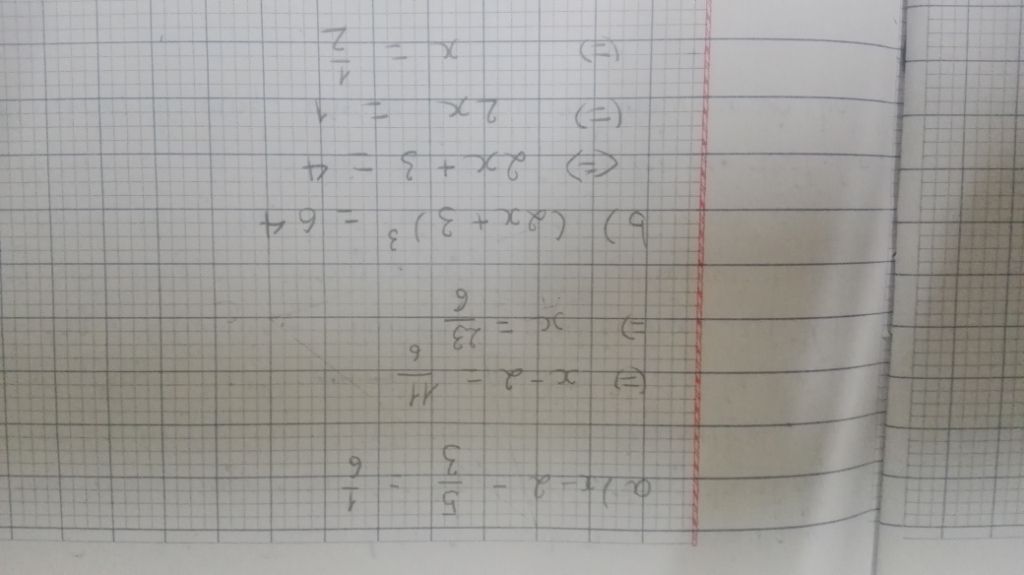 a) x - 2 - 5/3 = 1/6
(=) x - 2 = 11/6
=) x = 23/6
b) (2x + 3)³ = 64
(=) 2x + 3 = 4
(=) 2x = 1
(=) x = 1/2